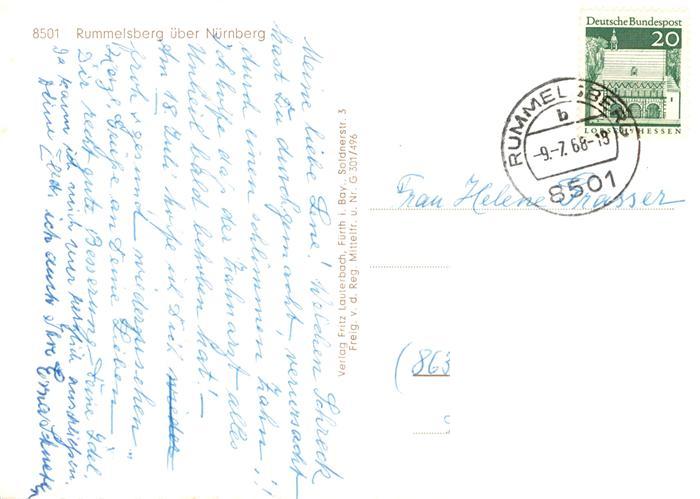 8501 Rummelsberg über Nürnberg
Meine liebe Lene! Welchen Schreck
hast Du durchgemacht, verursacht
durch einen schlimmen Zahn!!
Ich hoffe daß der Zahnarzt alles
Unheil bald behoben hat! –
Am 18 Juli hoffe ich Dich wieder
froh & gesund wiederzusehen.
Herzl. Grüße an Deine Lieben –
Dir recht gute Besserung Deine Idel.
Da kann ich mich nur herzlich anschließen.
Deine ich auch Ihre Erna
Verlag Fritz Lauterbach, Fürth i. Bay., Soldnerstr. 3
Freig. v. d. Reg. Mittelfr. u. Nr. G 301/496
Deutsche Bundespost
20
LORSCH/HESSEN
RUMMELSBERG
b
-9.-7.68-19
8501
Frau Helene Prasser
(863